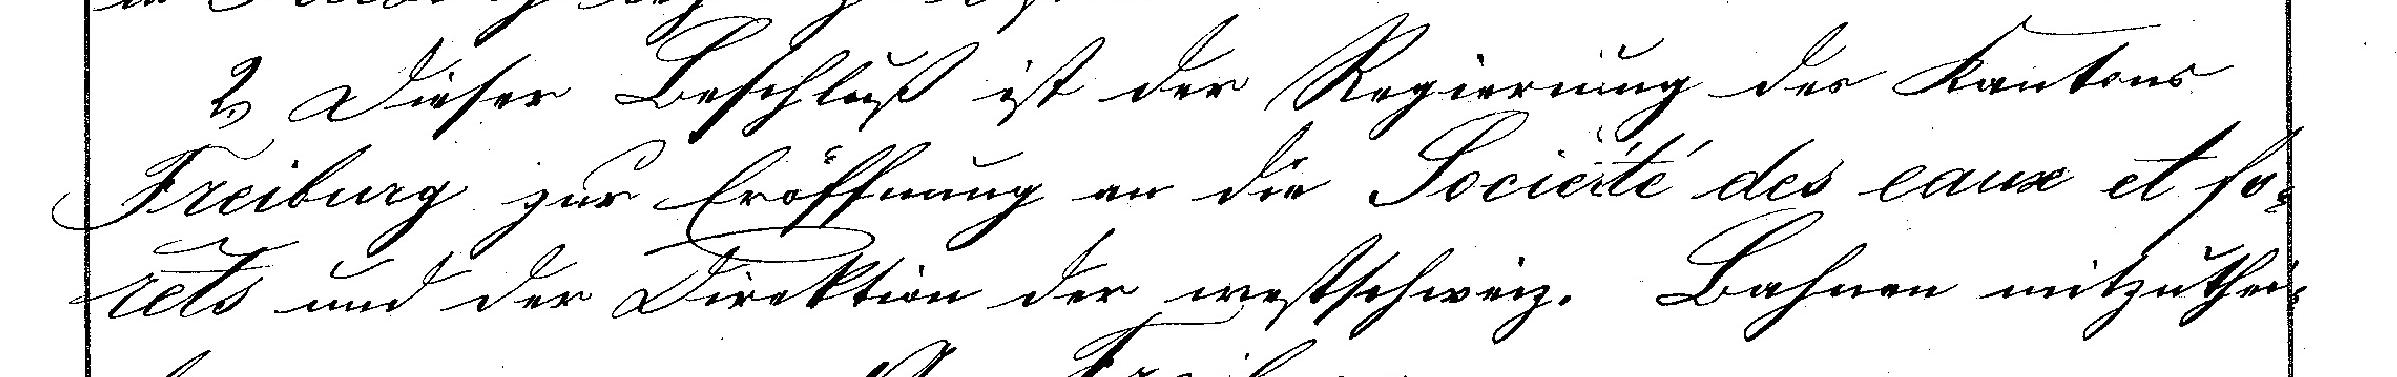 2, Dieser Beschluß ist der Regierung des Kantons
Freiburg zur Eröffnung an die Société des eaux et fo-
rets und der Direktion der westschweiz. Bahnen mitzuthei-